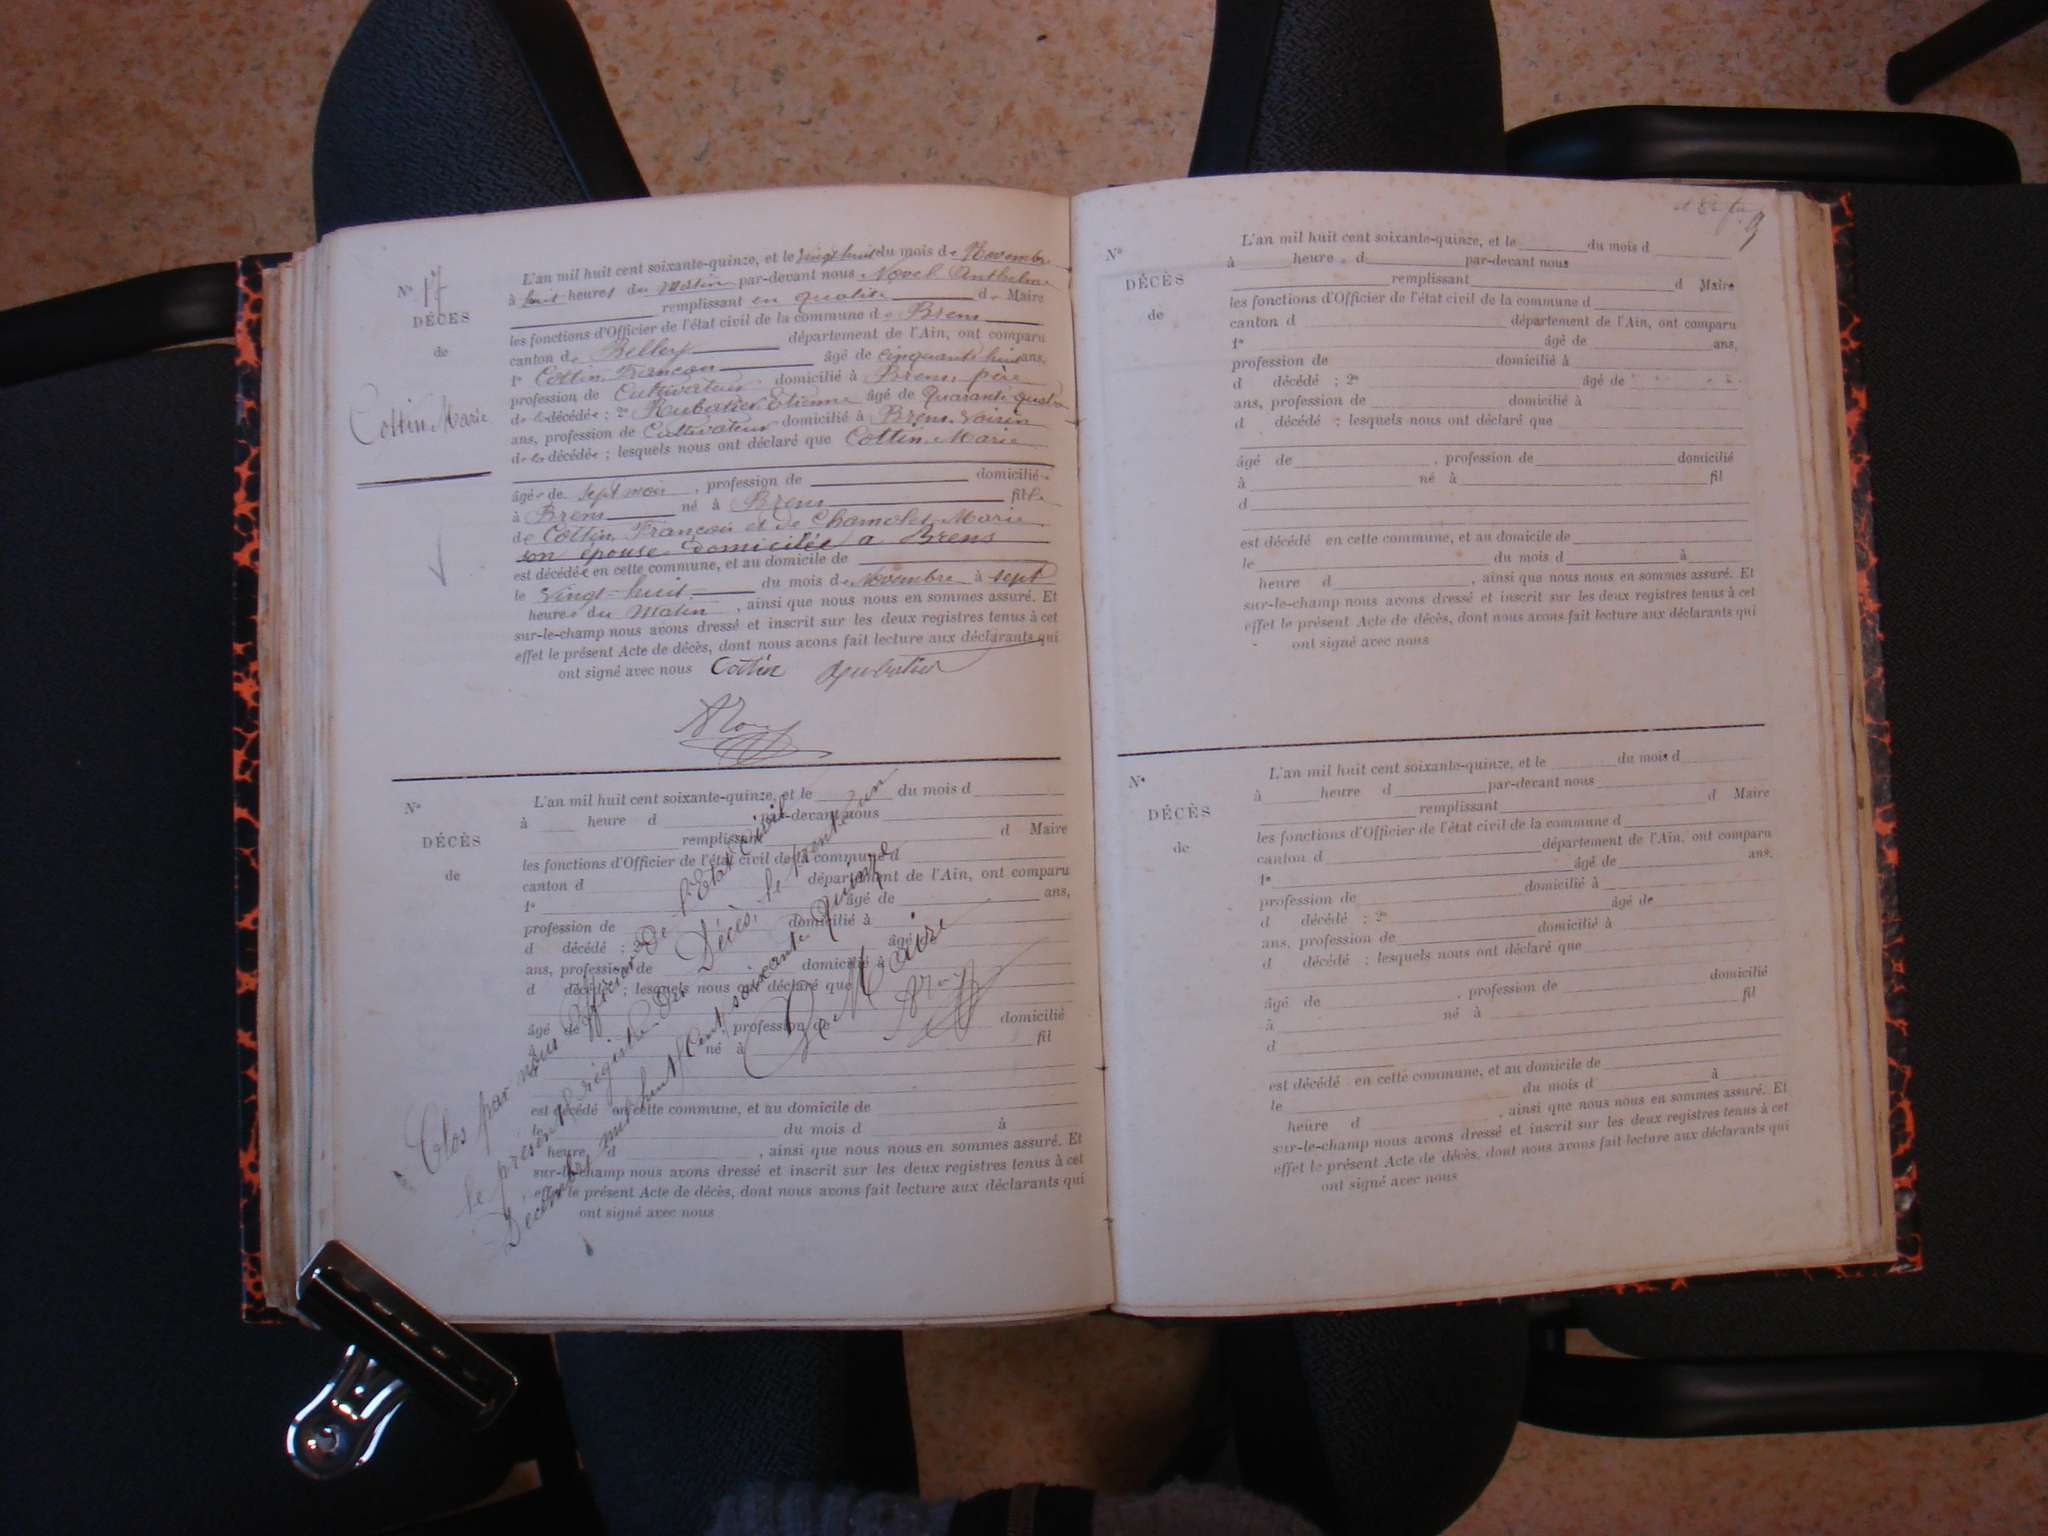 N° 17
DÉCÈS
de
Cottin Marie
L'an mil huit cent soixante-quinze, et le vingt huit du mois de Novembre
à huit heures du Matin par-devant nous Novel Anthelme
remplissant en qualité de Maire
les fonctions d'Officier de l'état civil de la commune de Brens
canton de Belley département de l'Ain, ont comparu
1° Cottin François âgé de cinquante huit ans,
profession de Cultivateur domicilié à Brens, père
de la décédée ; 2° Rubatier Etienne âgé de Quarante quatre
ans, profession de Cultivateur domicilié à Brens Voisin
de la décédée ; lesquels nous ont déclaré que Cottin Marie
âgée de sept mois, profession de domiciliée
à Brens né à Brens fille
de Cottin, François et de Chamolet Marie
son épouse domiciliée a Brens
est décédée en cette commune, et au domicile de
le Vingt-huit du mois de Novembre à sept
heures du Matin, ainsi que nous nous en sommes assuré. Et
sur-le-champ nous avons dressé et inscrit sur les deux registres tenus à cet
effet le présent Acte de décès, dont nous avons fait lecture aux déclarants qui
ont signé avec nous Cottin Rubatier
N°
DÉCÈS
de
L'an mil huit cent soixante-quinze, et le du mois d
à heure d par-devant nous
remplissant d Maire
les fonctions d'Officier de l'état civil de la commune d
canton d département de l'Ain, ont comparu
1° âgé de ans,
profession de domicilié à
d décédé ; 2° âgé de
ans, profession de domicilié à
d décédé ; lesquels nous ont déclaré que
âgé de , profession de domicilié
à né à fil
d
est décédé en cette commune, et au domicile de
le du mois d à
heure d , ainsi que nous nous en sommes assuré. Et
sur-le-champ nous avons dressé et inscrit sur les deux registres tenus à cet
effet le présent Acte de décès, dont nous avons fait lecture aux déclarants qui
ont signé avec nous
Clos par nous Officier De l'Etat Civil
le présent registre Des Décès, le trente un
Décembre mil huit cent soixante Quinze
Le Maire
N°
DÉCÈS
de
L'an mil huit cent soixante-quinze, et le du mois d
à heure d par-devant nous
remplissant d Maire
les fonctions d'Officier de l'état civil de la commune d
canton d département de l'Ain, ont comparu
1° âgé de ans,
profession de domicilié à
d décédé ; 2° âgé de
ans, profession de domicilié à
d décédé ; lesquels nous ont déclaré que
âgé de , profession de domicilié
à né à fil
d
est décédé en cette commune, et au domicile de
le du mois d à
heure d , ainsi que nous nous en sommes assuré. Et
sur-le-champ nous avons dressé et inscrit sur les deux registres tenus à cet
effet le présent Acte de décès, dont nous avons fait lecture aux déclarants qui
ont signé avec nous
N°
DÉCÈS
de
L'an mil huit cent soixante-quinze, et le du mois d
à heure d par-devant nous
remplissant d Maire
les fonctions d'Officier de l'état civil de la commune d
canton d département de l'Ain, ont comparu
1° âgé de ans,
profession de domicilié à
d décédé ; 2° âgé de
ans, profession de domicilié à
d décédé ; lesquels nous ont déclaré que
âgé de , profession de domicilié
à né à fil
d
est décédé en cette commune, et au domicile de
le du mois d à
heure d , ainsi que nous nous en sommes assuré. Et
sur-le-champ nous avons dressé et inscrit sur les deux registres tenus à cet
effet le présent Acte de décès, dont nous avons fait lecture aux déclarants qui
ont signé avec nous